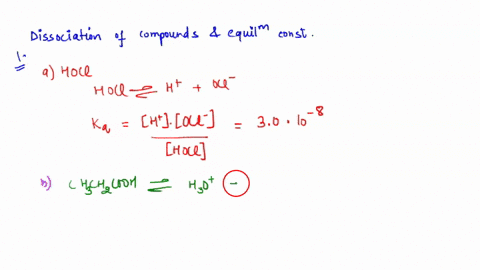 Dissociation of compounds & equilᵐ const.
1.
a) HOCl
HOCl ⇌ H⁺ + OCl⁻
Kₐ = [H⁺].[OCl⁻] / [HOCl] = 3.0 · 10⁻⁸
b) CH₃CH₂COOH ⇌ H₃O⁺ -